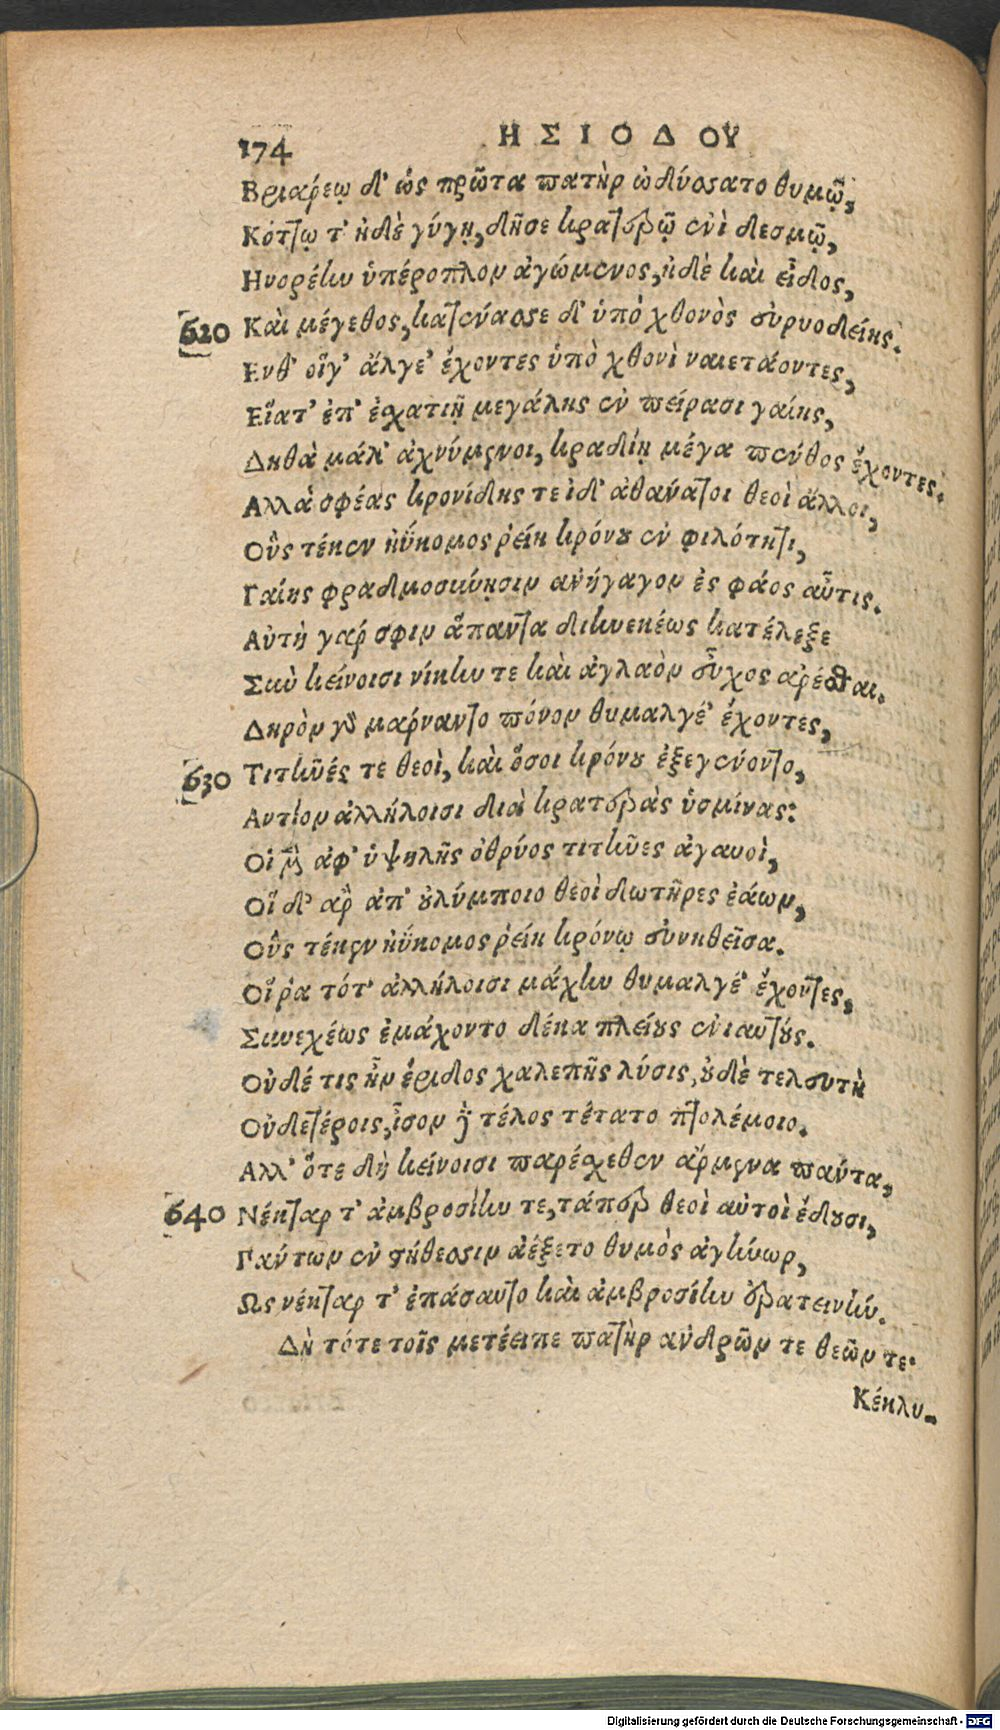 174
ΗΣΙΟΔΟΥ
Βριαρέῳ δ' ὡς πρῶτα πατὴρ ὠδύσσατο θυμῷ,
Κόττῳ τ' ἠδὲ γύγῃ, δῆσε κρατερῷ ἐνὶ δεσμῷ,
Ηνορέην ὑπέροπλον ἀγώμενος, ἠδὲ καὶ εἶδος,
620 Καὶ μέγεθος, κατένασσε δ' ὑπὸ χθονὸς εὐρυοδείης.
Ενθ' οἵγ' ἄλγε' ἔχοντες ὑπὸ χθονὶ ναιετάοντες,
Εἵατ' ἐπ' ἐσχατιῇ μεγάλης ἐν πείρασι γαίης,
Δηθὰ μάλ' ἀχνύμενοι, κραδίῃ μέγα πένθος ἔχοντες.
Αλλὰ σφέας κρονίδης τε ἰδ' ἀθάνατοι θεοὶ ἄλλοι,
Οὓς τέκεν ἠΰκομος ῥείη κρόνου ἐν φιλότητι,
Γαίης φραδμοσύνῃσιν ἀνήγαγον ἐς φάος αὖτις.
Αὐτὴ γάρ σφιν ἅπαντα διηνεκέως κατέλεξε
Σὺν κείνοισι νίκην τε καὶ ἀγλαὸν εὖχος ἀρέσθαι.
Δηρὸν γὰρ μάρναντο πόνον θυμαλγέ' ἔχοντες,
630 Τιτῆνές τε θεοὶ, καὶ ὅσοι κρόνου ἐξεγένοντο,
Αντίον ἀλλήλοισι διὰ κρατερὰς ὑσμίνας:
Οἱ μὲν ἀφ' ὑψηλῆς ὀθρύος τιτῆνες ἀγαυοὶ,
Οἵ δ' ἂρ ἀπ' οὐλύμποιο θεοὶ δωτῆρες ἐάων,
Οὓς τέκεν ἠΰκομος ῥείη κρόνῳ εὐνηθεῖσα.
Οἵ ῥα τότ' ἀλλήλοισι μάχην θυμαλγέ' ἔχοντες,
Συνεχέως ἐμάχοντο δέκα πλείους ἐνιαυτούς.
Οὐδέ τις ἦν ἔριδος χαλεπῆς λύσις, οὐδὲ τελευτὴ
Οὐδετέροις, ἶσον δὲ τέλος τέτατο πτολέμοιο.
Αλλ' ὅτε δὴ κείνοισι παρέσχεθεν ἄρμενα πάντα,
640 Νέκταρ τ' ἀμβροσίην τε, τάπερ θεοὶ αὐτοὶ ἔδουσι,
Γάντων ἐν στήθεσσιν ἀέξετο θυμὸς ἀγήνωρ,
Ως νέκταρ τ' ἐπάσαντο καὶ ἀμβροσίην ἐρατεινήν.
Δὴ τότε τοῖς μετέειπε πατὴρ ἀνδρῶν τε θεῶν τε·
Κέκλυ-
Digitalisierung gefördert durch die Deutsche Forschungsgemeinschaft - DFG